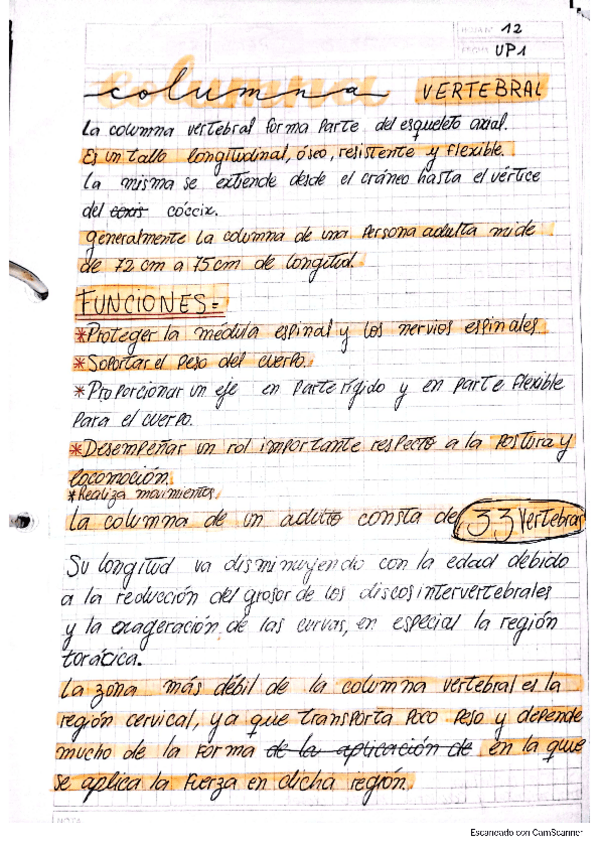 HOJA Nº 12
FECHA UP1
columna VERTEBRAL
La columna vertebral forma parte del esqueleto axial.
Es un tallo longitudinal, óseo, resistente y flexible.
La misma se extiende desde el cráneo hasta el vértice
del coxis cóccix.
Generalmente la columna de una persona adulta mide
de 72 cm a 75 cm de longitud.
FUNCIONES=
*Proteger la médula espinal y los nervios espinales
*Soportar el peso del cuerpo.
*Proporcionar un eje en parte rígido y en parte flexible
para el cuerpo.
*Desempeñar un rol importante respecto a la postura y
locomoción.
*Realiza movimientos.
La columna de un adulto consta de 33 vertebras
Su longitud va disminuyendo con la edad debido
a la reducción del grosor de los discos intervertebrales
y la exageración de las curvas, en especial la región
torácica.
La zona más débil de la columna vertebral es la
región cervical, ya que transporta poco peso y depende
mucho de la forma de la aplicación de en la que
se aplica la fuerza en dicha región.
NOTA
Escaneado con CamScanner